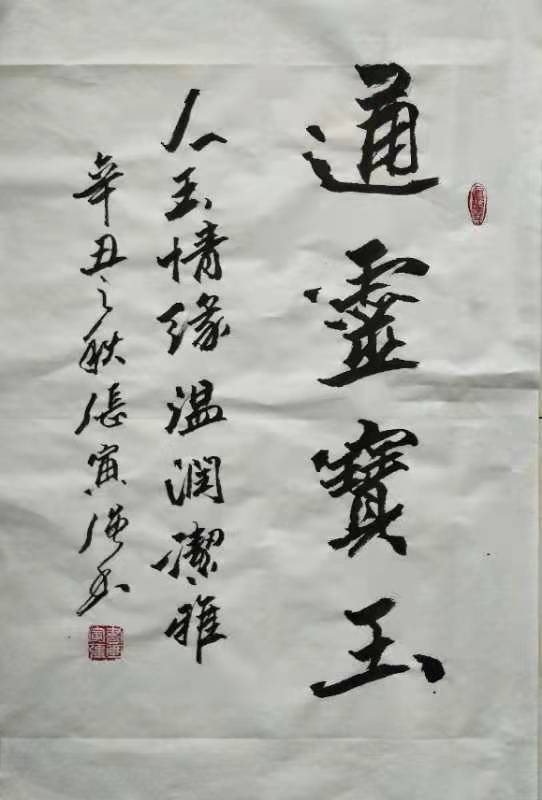 通靈寶玉
人玉情缘温润潔雅
辛丑之秋張寅強书